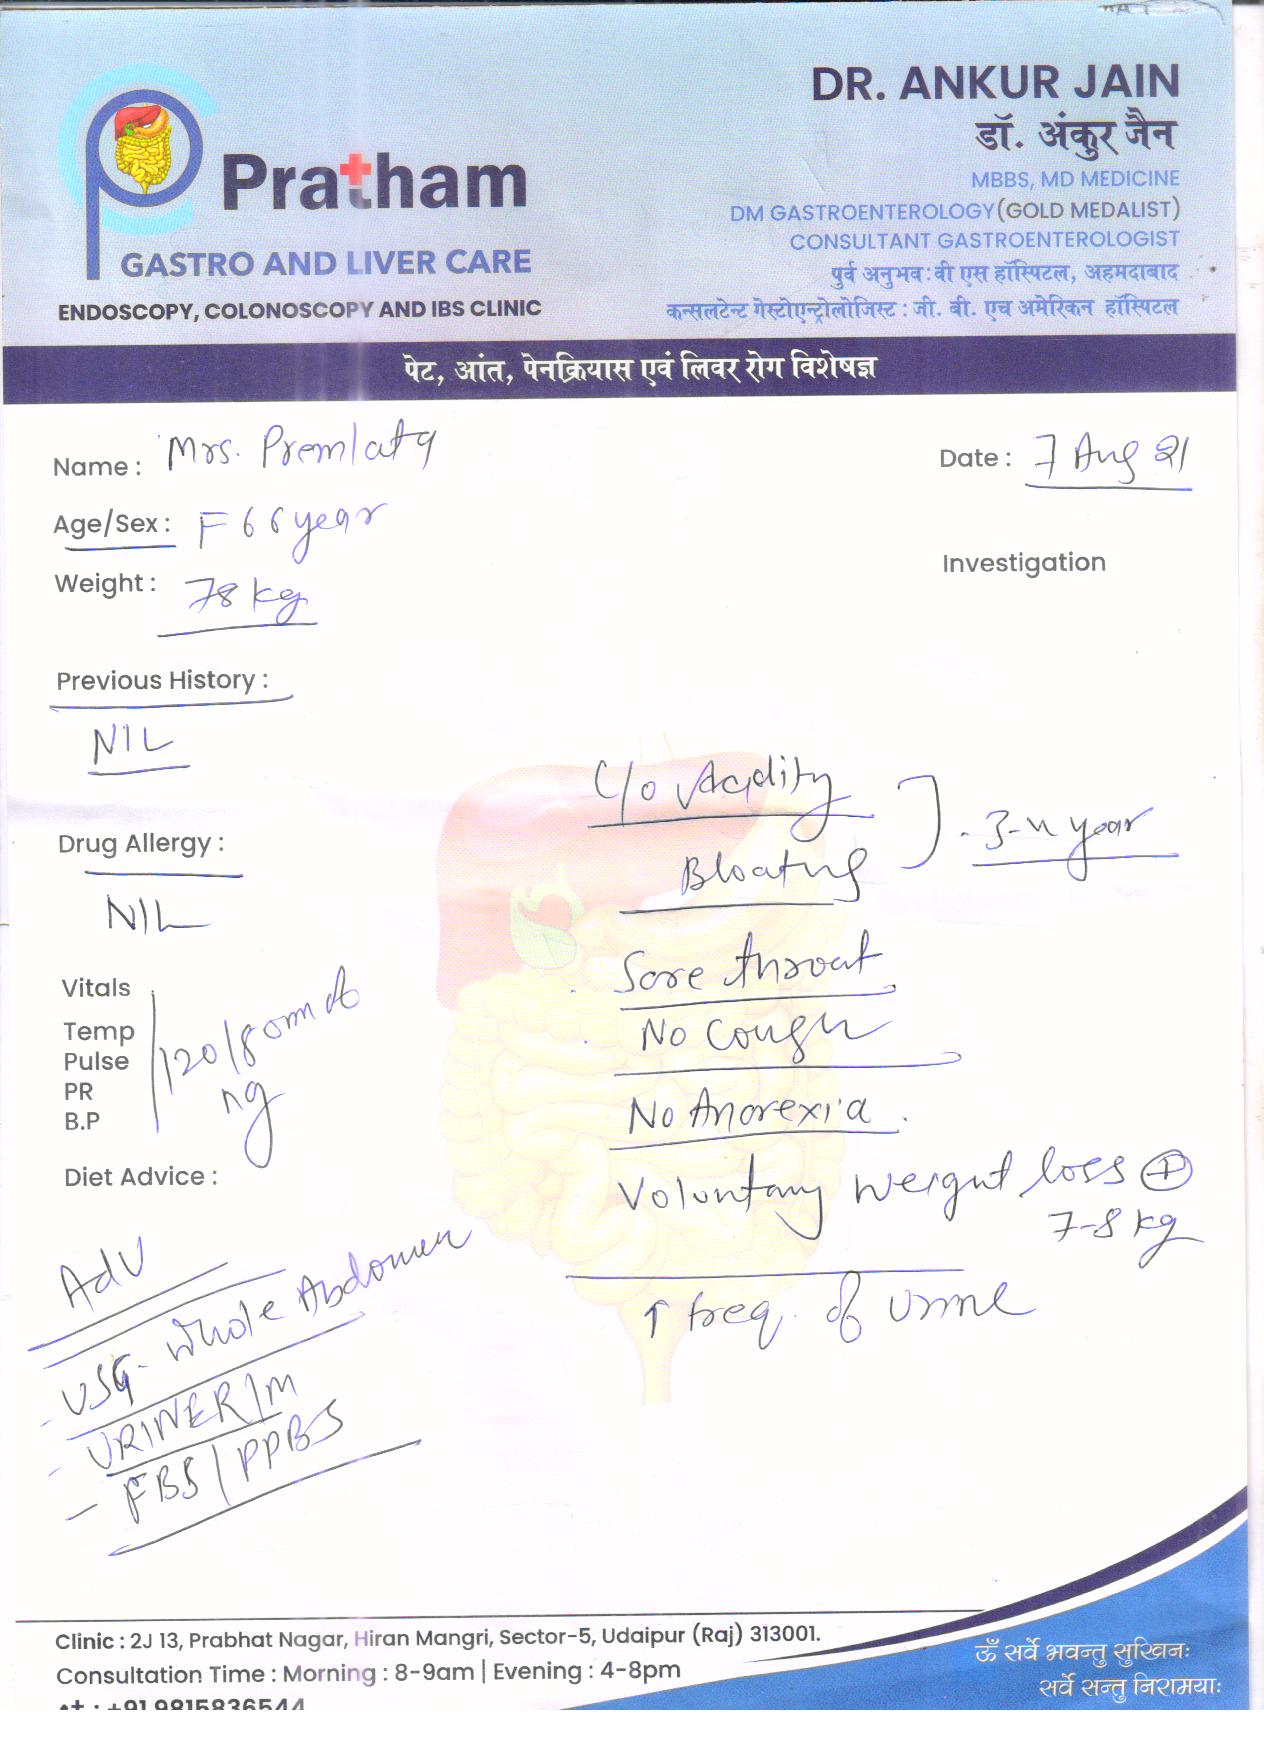 Pratham
GASTRO AND LIVER CARE
ENDOSCOPY, COLONOSCOPY AND IBS CLINIC
DR. ANKUR JAIN
डॉ. अंकुर जैन
MBBS, MD MEDICINE
DM GASTROENTEROLOGY(GOLD MEDALIST)
CONSULTANT GASTROENTEROLOGIST
पुर्व अनुभव:वी एस हॉस्पिटल, अहमदाबाद
कन्सलटेन्ट गेस्टोएन्ट्रोलोजिस्ट : जी. बी. एच अमेरिकन हॉस्पिटल
पेट, आंत, पेनक्रियास एवं लिवर रोग विशेषज्ञ
Name : Mrs. Premlata
Date : 7 Aug 21
Age/Sex : F 66 year
Investigation
Weight : 78 kg
Previous History :
NIL
C/o Acidity
Bloating
3-4 year
Drug Allergy :
NIL
Sore throat
No Cough
No Anorexia.
Voluntary weight loss +
7-8 kg
↑ freq. of urine
Vitals
Temp
Pulse
PR
B.P
120/80 mm of
Hg
Diet Advice :
Adv
- USG- Whole Abdomen
- URINE R/M
- FBS/PPBS
Clinic : 2J 13, Prabhat Nagar, Hiran Mangri, Sector-5, Udaipur (Raj) 313001.
Consultation Time : Morning : 8-9am | Evening : 4-8pm
+91 9815836544
ॐ सर्वे भवन्तु सुखिनः
सर्वे सन्तु निरामयाः